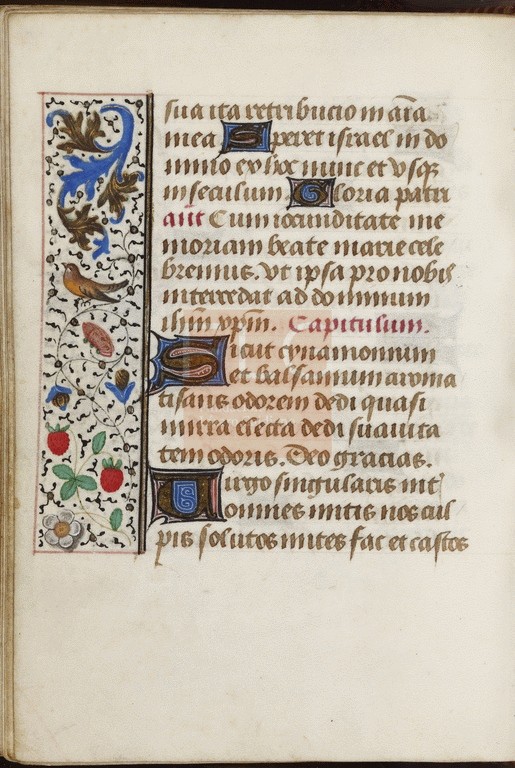 sua ita retribucio in aīa
mea Speret israel in do
mino ex hoc nunc et vsqꝫ
in seculum Gloria patri
ant̄ Cum iocunditate me
moriam beate marie cele
bremus. vt ipsa pro nobis
intercedat ad dominum
ihm̄ xp̄m. Capitulum.
Sicut cynamomum
et balsamum aroma
tisans odorem dedi quasi
mirra electa dedi suauita
tem odoris. Deo gracias.
Uirgo singularis int̄
omnes mitis nos cul
pis solutos mites fac et castos